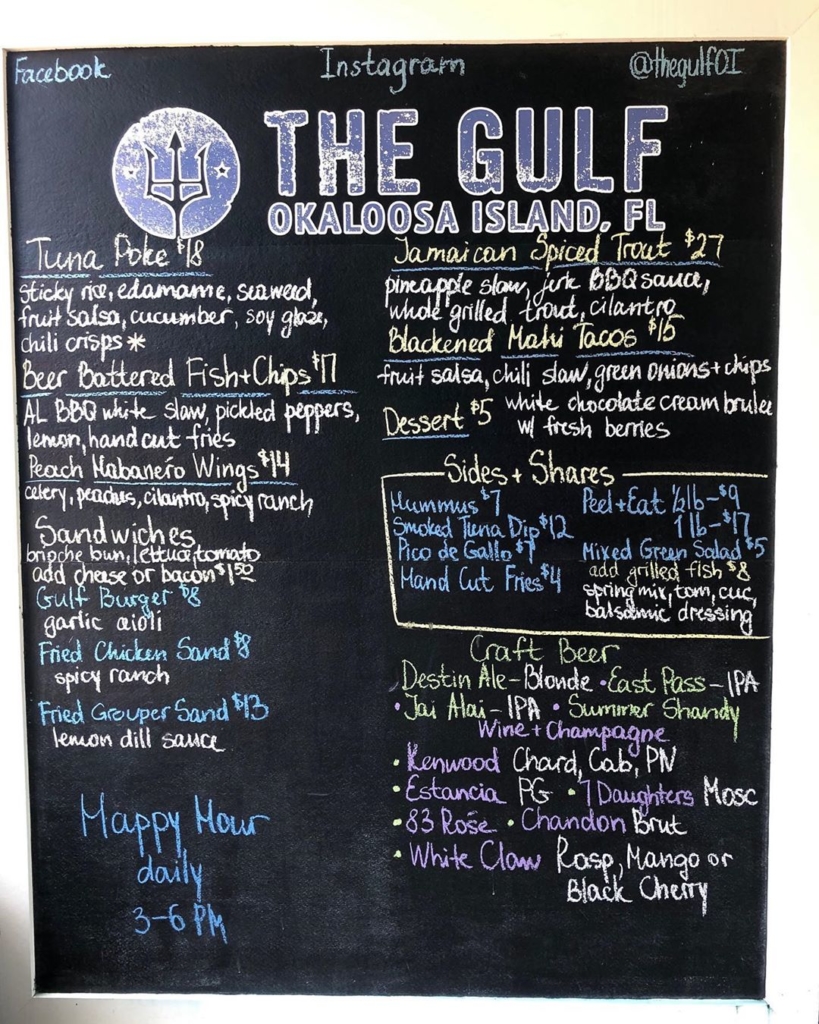 Facebook Instagram @thegulfOI
THE GULF
OKALOOSA ISLAND, FL
Tuna Poke $18
sticky rice, edamame, seaweed,
fruit salsa, cucumber, soy glaze,
chili crisps *
Beer Battered Fish+Chips $17
AL BBQ white slaw, pickled peppers,
lemon, hand cut fries
Peach Habanero Wings $14
celery, peaches, cilantro, spicy ranch
Sandwiches
brioche bun, lettuce, tomato
add cheese or bacon $1.50
Gulf Burger $8
garlic aioli
Fried Chicken Sand $8
spicy ranch
Fried Grouper Sand $13
lemon dill sauce
Happy Hour
daily
3-6 PM
Jamaican Spiced Trout $27
pineapple slaw, jerk BBQ sauce,
whole grilled trout, cilantro
Blackened Mahi Tacos $15
fruit salsa, chili slaw, green onions + chips
Dessert $5 white chocolate cream brulee
w/ fresh berries
Sides + Shares
Hummus $7
Smoked Tuna Dip $12
Pico de Gallo $7
Hand Cut Fries $4
Peel+Eat 1/2 lb - $9
1 lb - $17
Mixed Green Salad $5
add grilled fish $8
spring mix, tom, cuc,
balsamic dressing
Craft Beer
Destin Ale - Blonde • East Pass - IPA
• Jai Alai - IPA • Summer Shandy
Wine + Champagne
• Kenwood Chard, Cab, PN
• Estancia PG • 7 Daughters Mosc
• 83 Rosé • Chandon Brut
• White Claw Rasp, Mango or
Black Cherry